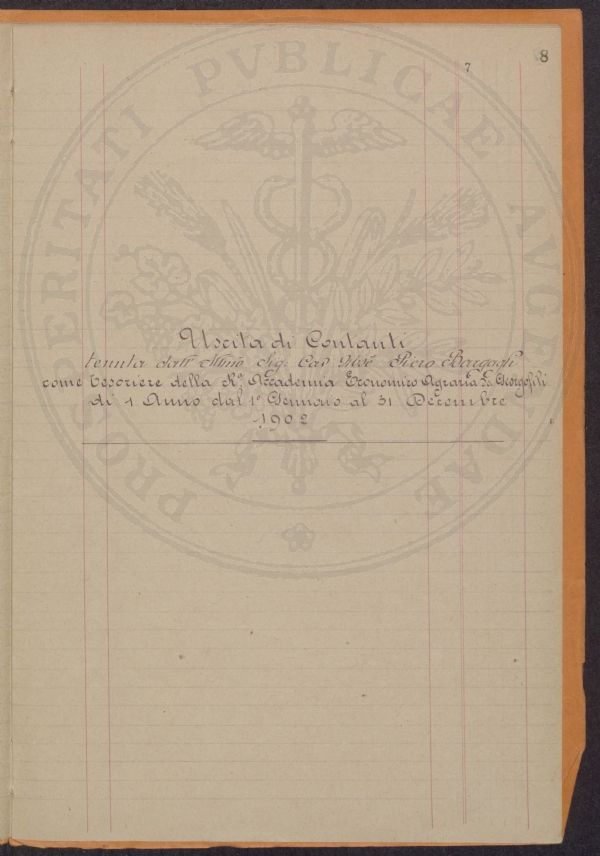 8
7
PROSPERITATI PVBLICAE AVGENDAE
Uscita di Contanti
tenuta dall' Illmo Sig. Cav. Piero Bargagli
come Tesoriere della Rª Accademia Economico Agraria de Georgofili
di 1 Anno dal 1º Gennaio al 31 Decembre
1902